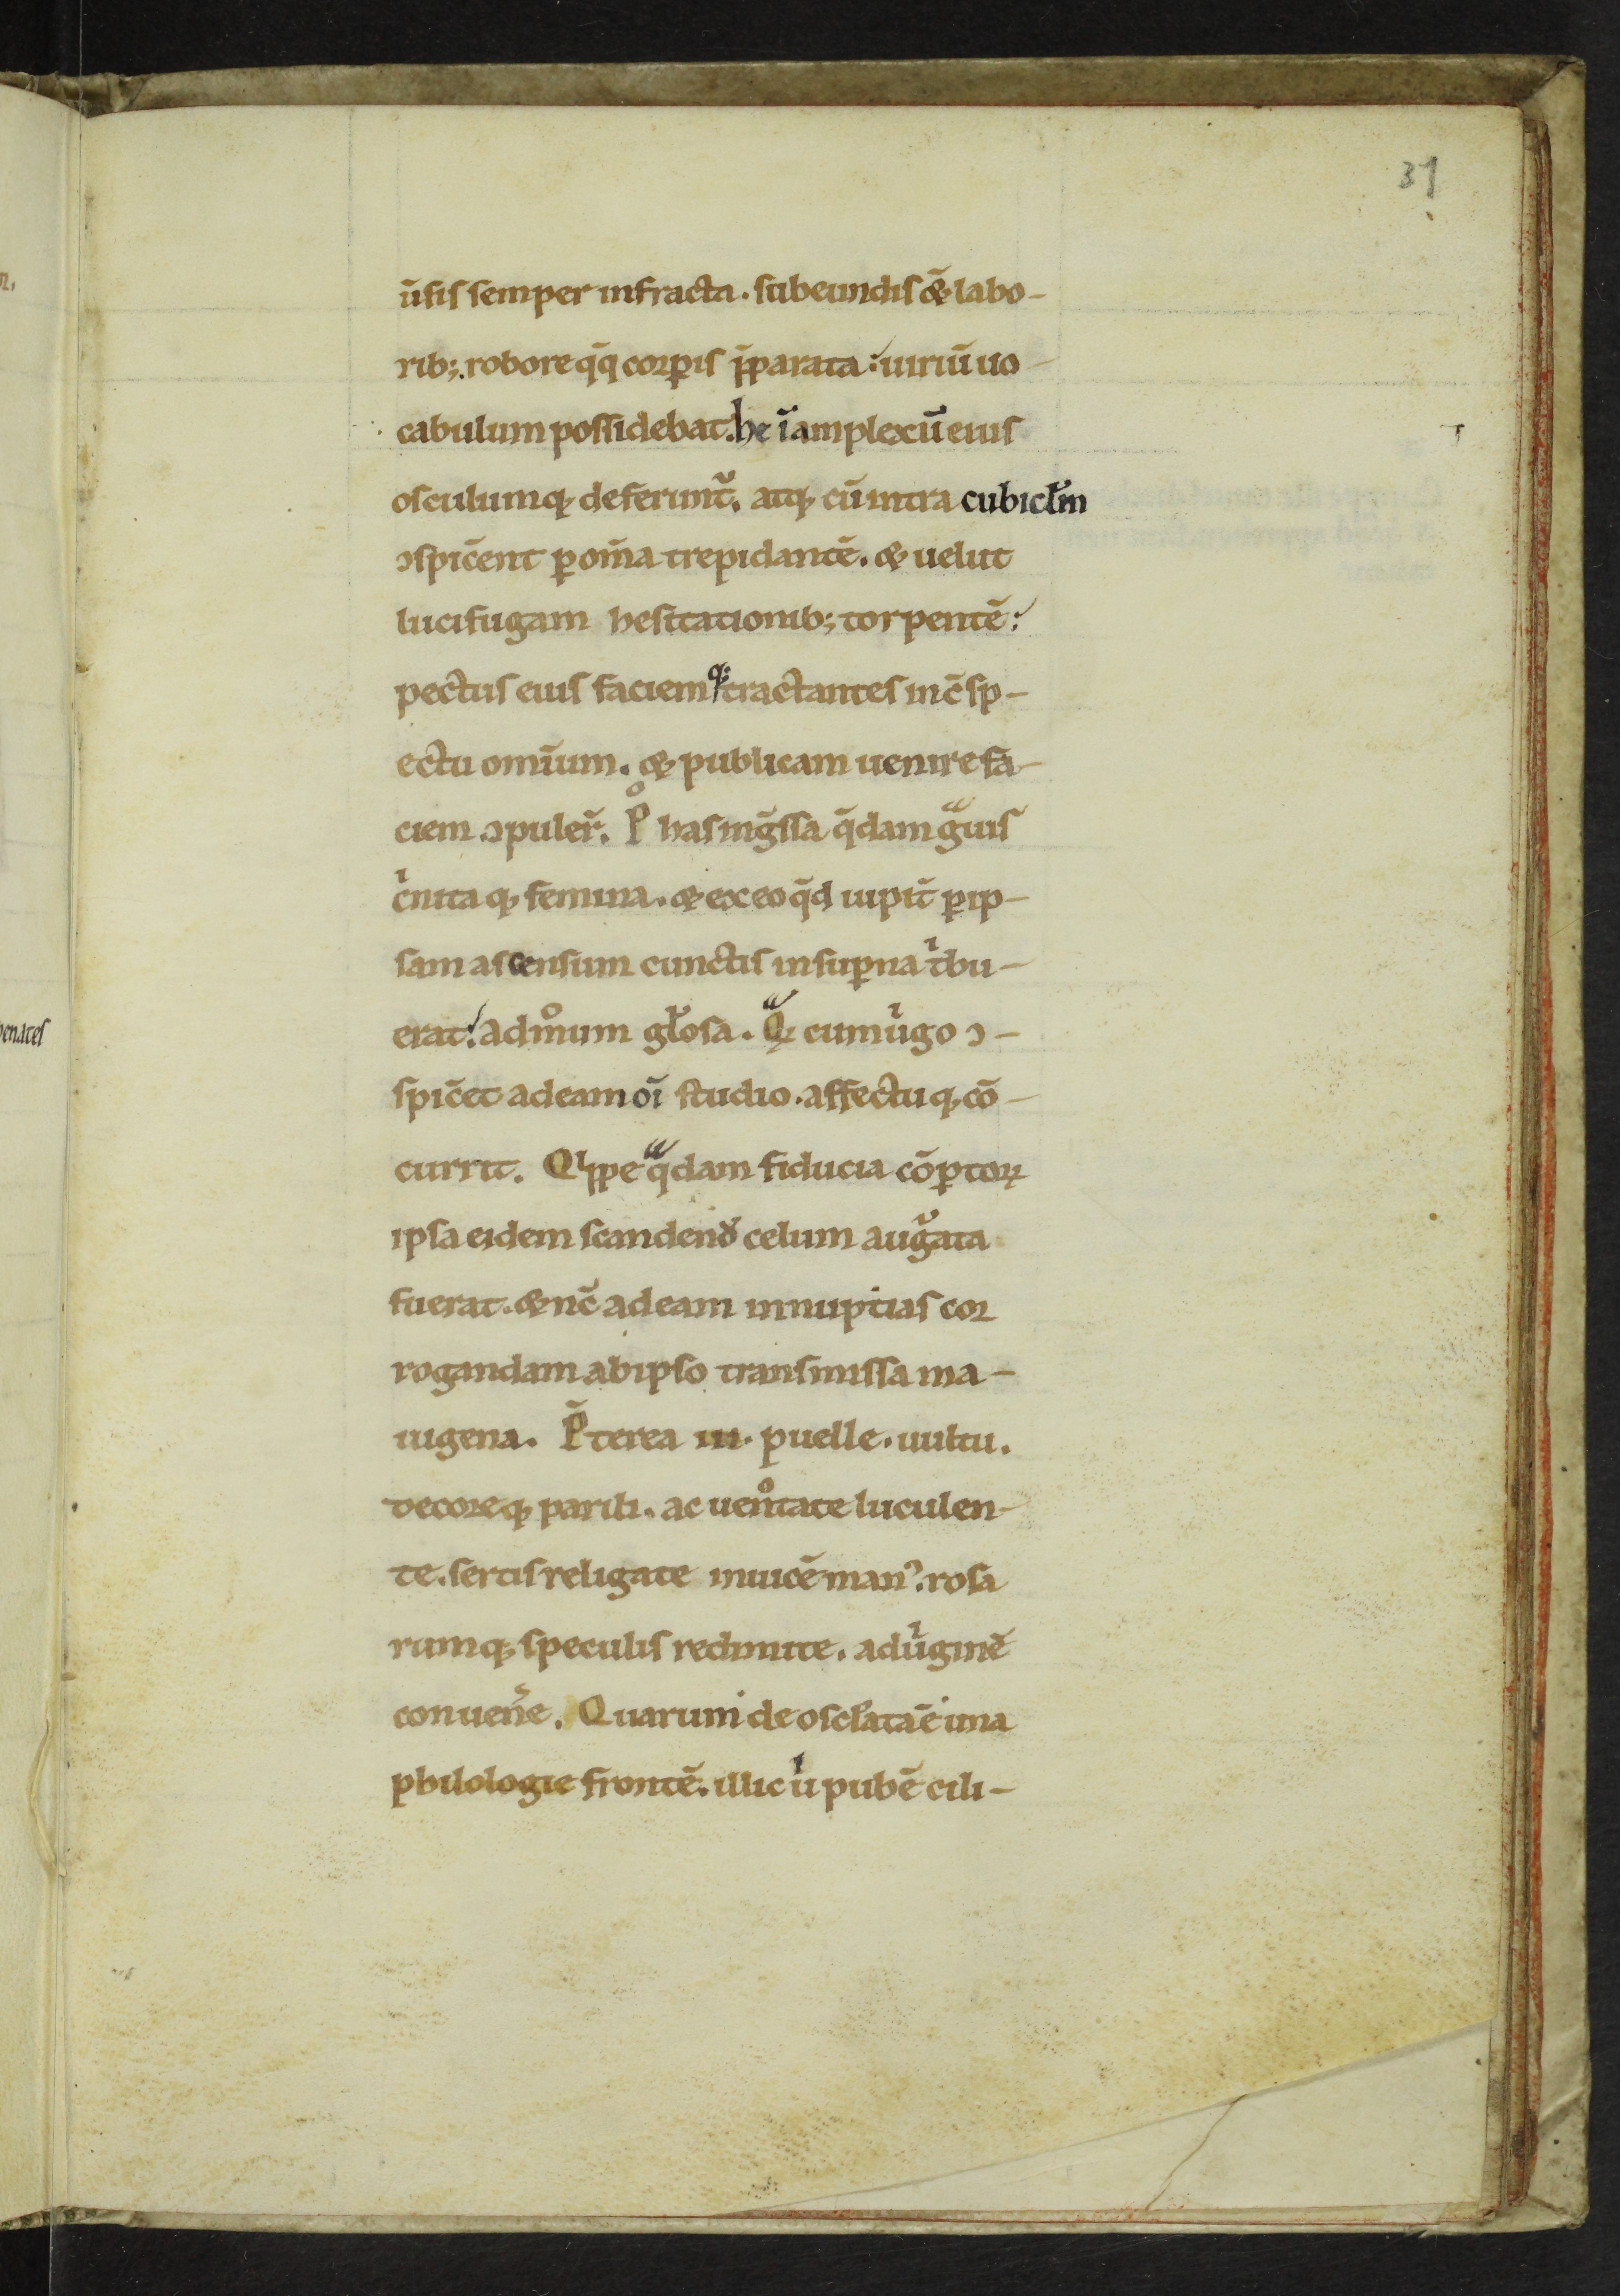 31
ūsis semper infracta. subeundis &̄ labo-
rib; robore q̄q corꝑis p̄parata: uiriū uo-
cabulum possidebat. he ī amplexū eius
osculumq; deferunt᷑. atq; cū intra cubicl̄m
ɔspic̄ent ꝑ om̄ia trepidantē. & uelut
lucifugam hesitationib; torpentē:
pectus eius faciemq; ꝯtractantes inc̄ sp-
ectu omīum. & publicam uenire fa-
ciem .ɔpuler̄. Pͦ has ing̃ssa q̄dam gͣuis
cͥnitaq; femina. & ex eo q̄d iupit̄ ꝑ ip-
sam ascensum cunctis in suꝑna tͥbu-
erat! admͦum gl̄osa. Qͣꝝ cum uͥgo ɔ-
spic̄et ad eam oī studio. affectuq; cō-
currit. Qͥppe qͣdam fiducia cōꝑtoꝝ
ipsa eidem scandend̾ celum augᷣata
fuerat. & nc̄ ad eam in nuptias cor
rogandam ab ipso transmissa ma-
iugena. P̄terea iii. puelle. uultu.
decoreq; parili. ac uenͦtate luculen-
te. sertis religate inuicē man᾽. rosa
rumq; speculis redimite. ad uͥginē
conuen̄e. Quarum de oscl̄ata ē una
philologie frontē. illic u̍ pubē cili-
enates